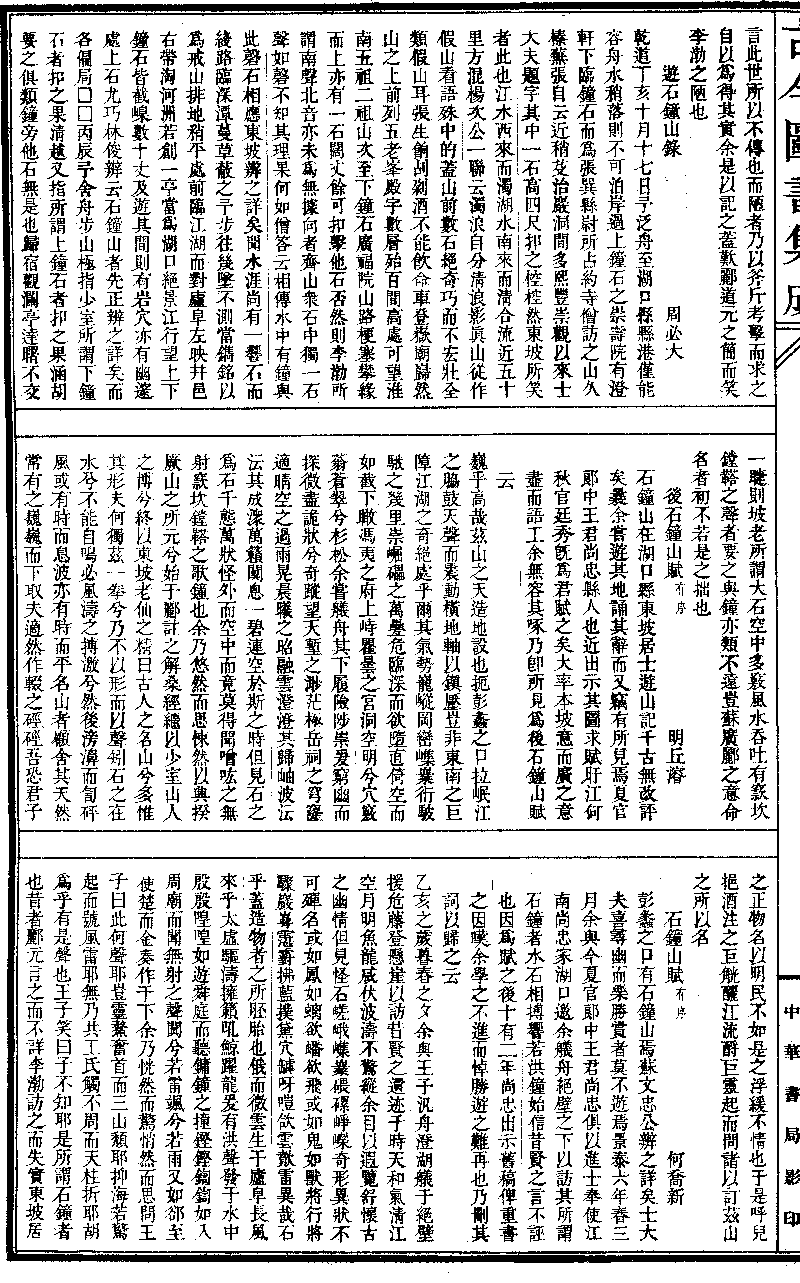 古今圖書集成
言此世所以不傳也而陋者乃以斧斤考擊而求之
自以為得其實余是以記之蓋歎酈道元之簡而笑
李渤之陋也
遊石鐘山錄 周必大
乾道丁亥十月十七日早泛舟至湖口縣縣港僅能
容舟水稍落則不可泊岸過上鐘石之崇壽院有澄
軒下臨鐘石而為張巽縣尉所占約寺僧訪之山久
榛蕪張自云近稍芟治巖洞間多熙豐崇觀以來士
大夫題字其中一石高四尺扣之悾悾然東坡所笑
者此也江水西來而濁湖水南來而清合流近五十
里方混楊次公一聯云濁浪自分清浪影真山從作
假山看語殊中的蓋山前數石絕奇巧而不宏壯全
類假山耳張生餉酒不能飲命車登嶽廟巋然
山之上前列五老峯殿宇數層殆百間高處可望淮
南五祖二祖山次至下鐘石廣福院山路梗塞攀緣
而上亦有一石闊丈餘可扣擊他石否然則李渤所
謂南聲北音亦未為無據向者齊山眾石中獨一石
聲如磬不知其理果何如僧答云相傳水中有鐘與
此磬石相應東坡辨之詳矣聞水涯尚有一磬石而
後路臨深潭蔓草蔽之予步往幾墜不測當鐫銘以
為戒山排地稍平處前臨江湖而對廬阜左映井邑
右帶淘河洲若創一亭當為湖口絕景江行望上下
鐘石皆巉嵲數十丈及遊其間則有岩穴亦有幽邃
處上石尤巧林俊辨云石鐘山者先正辨之詳矣而
各偏局□□丙辰予舍舟步山極指少室所謂下鐘
石者扣之果清越又指所謂上鐘石者扣之果涵胡
要之俱類鐘旁他石無是也歸宿觀瀾亭達曙不交
一睫則坡老所謂大石空中多竅風水吞吐有窾坎
鏜鞳之聲者要之與鐘亦類不遠豈蘇廣酈之意命
名者初不若是之拙也
後石鐘山賦 有序 明丘濬
石鐘山在湖口縣東坡居士遊山記千古無改評
矣曩余嘗遊其地誦其辭而又竊有所見焉夏官
郎中王君尚忠縣人也近出示其圖求賦盱江何
秋官廷秀旣為君賦之矣大率本坡意而廣之意
盡而語工余無容其啄乃卽所見為後石鐘山賦
云
巍乎高哉茲山之天造地設也扼彭蠡之口拉岷江
之脇鼓天聲而震動橫地軸以鎮壓豈非東南之巨
障江湖之奇絕處乎爾其氣勢巃嵸岡巒嶫嶪衍駊
騀之幾里崇嵎礧之萬疊危臨深而欲墮直倚空而
如截下瞰馮夷之府上峙瞿曇之宮洞空明兮穴竅
蓊蒼翠兮杉松余嘗艤舟其下履險陟崇爰窮幽而
探微盡詭狀兮奇蹤望天塹之渺茫極岳祠之穹窿
適晴空之過雨晃晨曦之昭融雲澄澄其歸岫波沄
沄其成漴萬籟闃息一碧連空於斯之時但見石之
為石千態萬狀怪外而空中而竟莫得聞噌吰之無
射窾坎鏜鞳之歌鐘也余乃悠然而思悚然以興揆
厥山之所元兮始于酈註之解桑經繼以少室山人
之博兮終以東坡老仙之精曰古人之名山兮多惟
其形夫何獨茲一拳兮乃不以形而以聲矧石之在
水兮不能自鳴必風濤之搏激兮然後滂湃而訇砰
風或有時而息波亦有時而平名山者顧舍其天然
常有之巍巍而下取夫適然作輟之硜硜吾恐君子
之正物名以明民不如是之浮緩不情也于是呼兒
挹酒注之巨觥釃江流酹巨靈起而問諸以訂茲山
之所以名
石鐘山賦 有序 何喬新
彭蠡之口有石鐘山焉蘇文忠公辨之詳矣士大
夫喜尋幽而樂勝賞者莫不遊焉景泰六年春三
月余與今夏官郎中王君尚忠俱以進士奉使江
南尚忠家湖口邀余艤舟絕壁之下以訪其所謂
石鐘者水石相搏響若洪鐘始信昔賢之言不誣
也因為賦之後十有二年尚忠出示舊稿俾重書
之因嘆余學之不進而悼勝遊之難再也乃刪其
詞以歸之云
乙亥之歲暮春之夕余與王子汎舟澄湖艤于絕壁
援危藤登懸崖以訪昔賢之遺迹于時天和氣清江
空月明魚龍咸伏波濤不驚縱余目以遐覽紓懷古
之幽情但見怪石嵯峨嶫嶪磥硊崢嶸奇形異狀不
可殫名或如鳳如螭欲蟠欲飛或如鬼如獸將行將
驟巖嵓霮䨴拂藍撲黛穴罅呀㗿欽雲歕雷異哉石
乎蓋造物者之所胚胎也俄而微雲生于廬阜長風
來乎太虛驅濤擁籟吼鯨躍龍爰有洪聲發于水中
殷殷隍隍如遊舜庭而聽鏞鐘之撞鏗鏗鍧鍧如入
周廟而聞無射之聲闐兮若雷颯兮若雨又如郤至
使楚而金奏作于下余乃恍然而驚悄然而思問王
子曰此何聲耶豈靈鰲奮首而三山頹耶抑海若驚
起而號風雷耶無乃共工氏觸不周而天柱折耶胡
為乎有是聲也王子笑曰子不知耶是所謂石鐘者
也昔者酈元言之而不詳李渤訪之而失實東坡居
中華書局影印